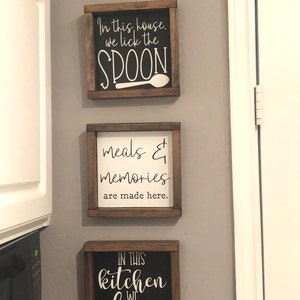 In this house,
we lick the
SPOON
meals &
memories
are made here.
IN THIS
kitchen
WE